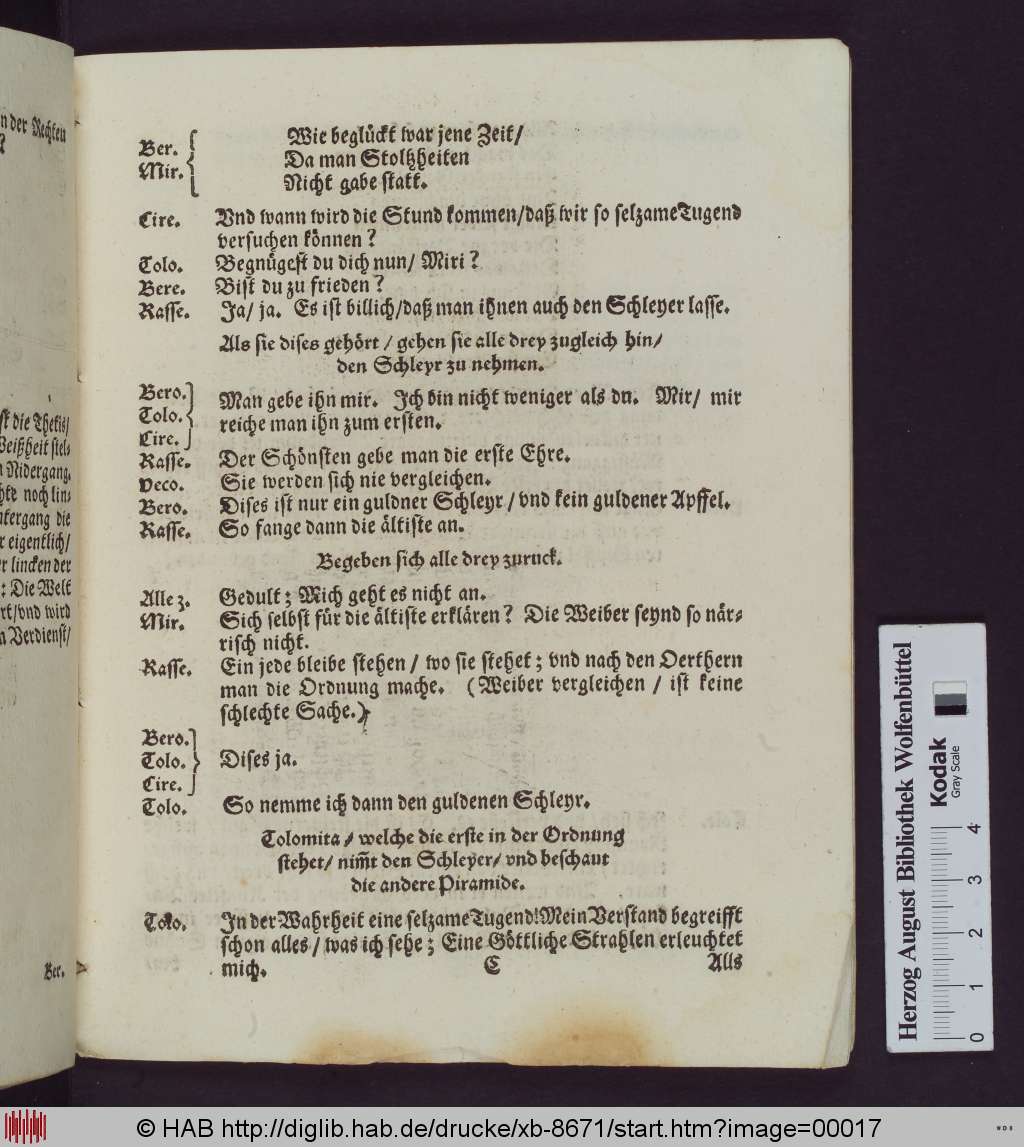 n der Rechten
?
st die Thetis/
Weißheit stel-
n Nidergang.
chte noch lin-
ntergang die
r eigentlich/
er lincken der
: Die Welt
rt/vnd wird
n Verdienst/
Ber.
Ber. Wie beglückt war jene Zeit/
Mir. Da man Stoltzheiten
Nicht gabe statt.
Cire. Vnd wann wird die Stund kommen/daß wir so selzame Tugend
versuchen können?
Tolo. Begnügest du dich nun/ Miri?
Bere. Bist du zu frieden?
Rasse. Ja/ ja. Es ist billich/daß man ihnen auch den Schleyer lasse.
Als sie dises gehört / gehen sie alle drey zugleich hin/
den Schleyr zu nehmen.
Bero. Man gebe ihn mir. Ich bin nicht weniger als du. Mir/ mir
Tolo. reiche man ihn zum ersten.
Cire.
Rasse. Der Schönsten gebe man die erste Ehre.
Veco. Sie werden sich nie vergleichen.
Bero. Dises ist nur ein guldner Schleyr / vnd kein guldener Apffel.
Rasse. So fange dann die ältiste an.
Begeben sich alle drey zuruck.
Alle 3. Gedult; Mich geht es nicht an.
Mir. Sich selbst für die ältiste erklären? Die Weiber seynd so när-
risch nicht.
Rasse. Ein jede bleibe stehen / wo sie stehet; vnd nach den Oerthern
man die Ordnung mache. (Weiber vergleichen / ist keine
schlechte Sache.)
Bero.
Tolo. Dises ja.
Cire.
Tolo. So nemme ich dann den guldenen Schleyr.
Tolomita / welche die erste in der Ordnung
stehet/ nim̃t den Schleyer/ vnd beschaut
die andere Piramide.
Tolo. In der Wahrheit eine selzame Tugend! Mein Verstand begreifft
schon alles / was ich sehe; Eine Göttliche Strahlen erleuchtet
mich. C Alls
Herzog August Bibliothek Wolfenbüttel
Kodak
Gray Scale
0 1 2 3 4
© HAB http://diglib.hab.de/drucke/xb-8671/start.htm?image=00017
WDB